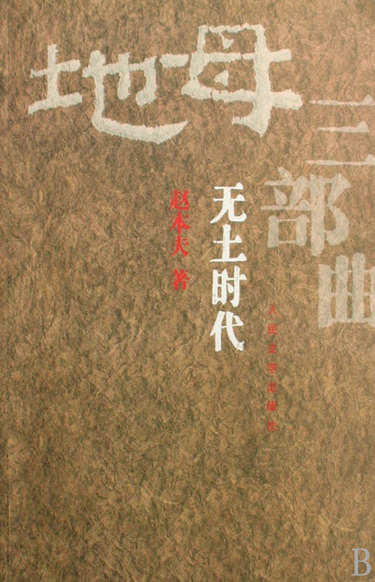 地母
三部曲
无土时代
赵本夫 著
人民文学出版社
B